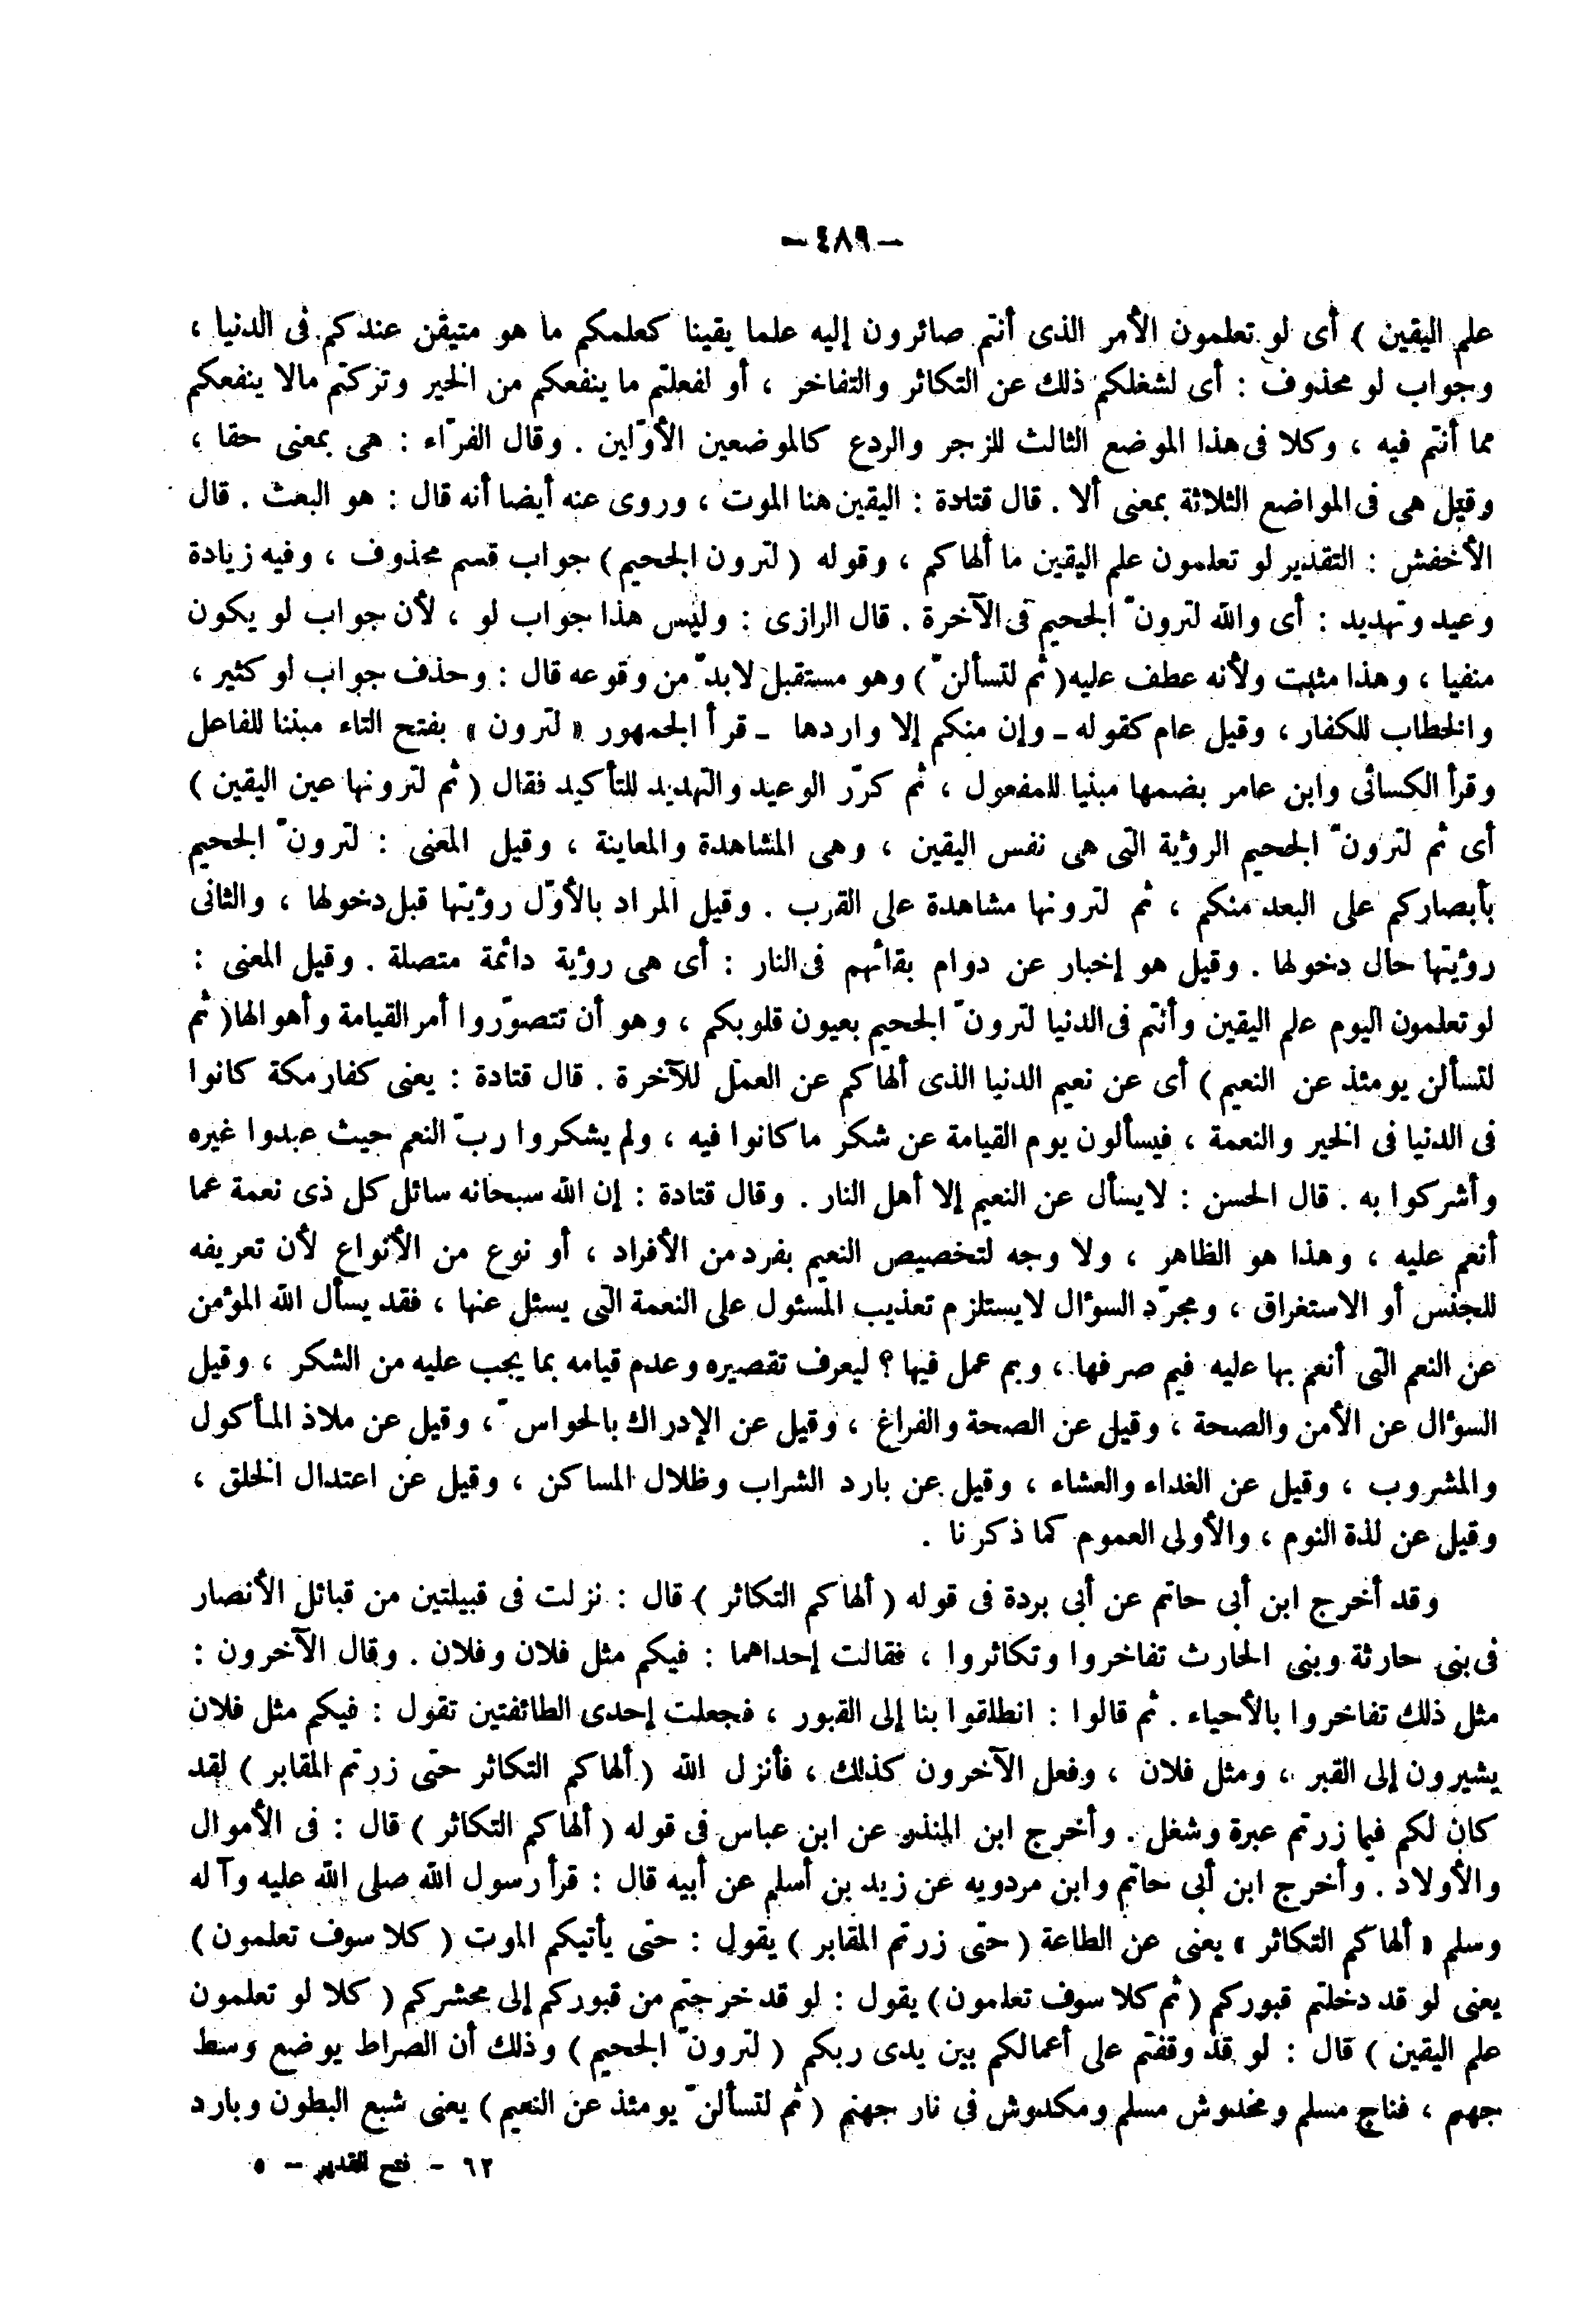 - ٤٨٩ -
علم اليقين ) أى لو تعلمون الأمر الذى أنتم صائرون إليه علما يقينا كعلمكم ما هو متيقن عندكم فى الدنيا ،
وجواب لو محذوف : أى لشغلكم ذلك عن التكاثر والتفاخر ، أو لفعلتم ما ينفعكم من الخير وتركتم مالا ينفعكم
مما أنتم فيه ، وكلا فى هذا الموضع الثالث للزجر والردع كالموضعين الأوّلين . وقال الفرّاء : هى بمعنى حقا ،
وقيل هى فى المواضع الثلاثة بمعنى ألا . قال قتادة : اليقين هنا الموت ، وروى عنه أيضا أنه قال : هو البعث . قال
الأخفش : التقدير لو تعلمون علم اليقين ما ألهاكم ، وقوله ( لترون الجحيم ) جواب قسم محذوف ، وفيه زيادة
وعيد وتهديد : أى والله لترونّ الجحيم فى الآخرة . قال الرازى : وليس هذا جواب لو ، لأن جواب لو يكون
منفيا ، وهذا مثبت ولأنه عطف عليه ( ثم لتسألنّ ) وهو مستقبل لابدّ من وقوعه قال : وحذف جواب لو كثير ،
والخطاب للكفار ، وقيل عام كقوله - وإن منكم إلا واردها - قرأ الجمهور « لترون » بفتح التاء مبننا للفاعل
وقرأ الكسائى وابن عامر بضمها مبنيا للمفعول ، ثم كرّر الوعيد والتهديد للتأكيد فقال ( ثم لترونها عين اليقين )
أى ثم لترونّ الجحيم الرؤية التى هى نفس اليقين ، وهى المشاهدة والمعاينة ، وقيل المعنى : لترونّ الجحيم
بأبصاركم على البعد منكم ، ثم لترونها مشاهدة على القرب . وقيل المراد بالأوّل رؤيتها قبل دخولها ، والثانى
رؤيتها حال دخولها . وقيل هو إخبار عن دوام بقائهم فى النار : أى هى رؤية دائمة متصلة . وقيل المعنى :
لو تعلمون اليوم علم اليقين وأنتم فى الدنيا لترونّ الجحيم بعيون قلوبكم ، وهو أن تتصوّروا أمر القيامة وأهوالها ( ثم
لتسألن يومئذ عن النعيم ) أى عن نعيم الدنيا الذى ألهاكم عن العمل للآخرة . قال قتادة : يعنى كفار مكة كانوا
فى الدنيا فى الخير والنعمة ، فيسألون يوم القيامة عن شكر ما كانوا فيه ، ولم يشكروا ربّ النعم حيث عبدوا غيره
وأشركوا به . قال الحسن : لايسأل عن النعيم إلا أهل النار . وقال قتادة : إن الله سبحانه سائل كل ذى نعمة عما
أنعم عليه ، وهذا هو الظاهر ، ولا وجه لتخصيص النعيم بفرد من الأفراد ، أو نوع من الأنواع لأن تعريفه
للجنس أو الاستغراق ، ومجرّد السؤال لايستلزم تعذيب المسئول على النعمة التى يسئل عنها ، فقد يسأل الله المؤمن
عن النعم التى أنعم بها عليه فيم صرفها ، وبم عمل فيها ؟ ليعرف تقصيره وعدم قيامه بما يجب عليه من الشكر ، وقيل
السؤال عن الأمن والصحة ، وقيل عن الصحة والفراغ ، وقيل عن الإدراك بالحواسّ ، وقيل عن ملاذ المأكول
والمشروب ، وقيل عن الغداء والعشاء ، وقيل عن بارد الشراب وظلال المساكن ، وقيل عن اعتدال الخلق ،
وقيل عن لذة النوم ، والأولى العموم كما ذكرنا .
وقد أخرج ابن أبى حاتم عن أبى بردة فى قوله ( ألهاكم التكاثر ) قال : نزلت فى قبيلتين من قبائل الأنصار
فى بنى حارثة وبنى الحارث تفاخروا وتكاثروا ، فقالت إحداهما : فيكم مثل فلان وفلان . وقال الآخرون :
مثل ذلك تفاخروا بالأحياء . ثم قالوا : انطلقوا بنا إلى القبور ، فجعلت إحدى الطائفتين تقول : فيكم مثل فلان
يشيرون إلى القبر ، ومثل فلان ، وفعل الآخرون كذلك ، فأنزل الله ( ألهاكم التكاثر حتى زرتم المقابر ) لقد
كان لكم فيما زرتم عبرة وشغل . وأخرج ابن المنذر عن ابن عباس فى قوله ( ألهاكم التكاثر ) قال : فى الأموال
والأولاد . وأخرج ابن أبى حاتم وابن مردويه عن زيد بن أسلم عن أبيه قال : قرأ رسول الله صلى الله عليه وآله
وسلم « ألهاكم التكاثر » يعنى عن الطاعة ( حتى زرتم المقابر ) يقول : حتى يأتيكم الموت ( كلا سوف تعلمون )
يعنى لو قد دخلتم قبوركم ( ثم كلا سوف تعلمون ) يقول : لو قد خرجتم من قبوركم إلى محشركم ( كلا لو تعلمون
علم اليقين ) قال : لو قد وقفتم على أعمالكم بين يدى ربكم ( لترونّ الجحيم ) وذلك أن الصراط يوضع وسط
جهنم ، فناج مسلم ومخدوش مسلم ومكدوش فى نار جهنم ( ثم لتسألنّ يومئذ عن النعيم ) يعنى شبع البطون وبارد
٦٢ - فتح القدير - ٥